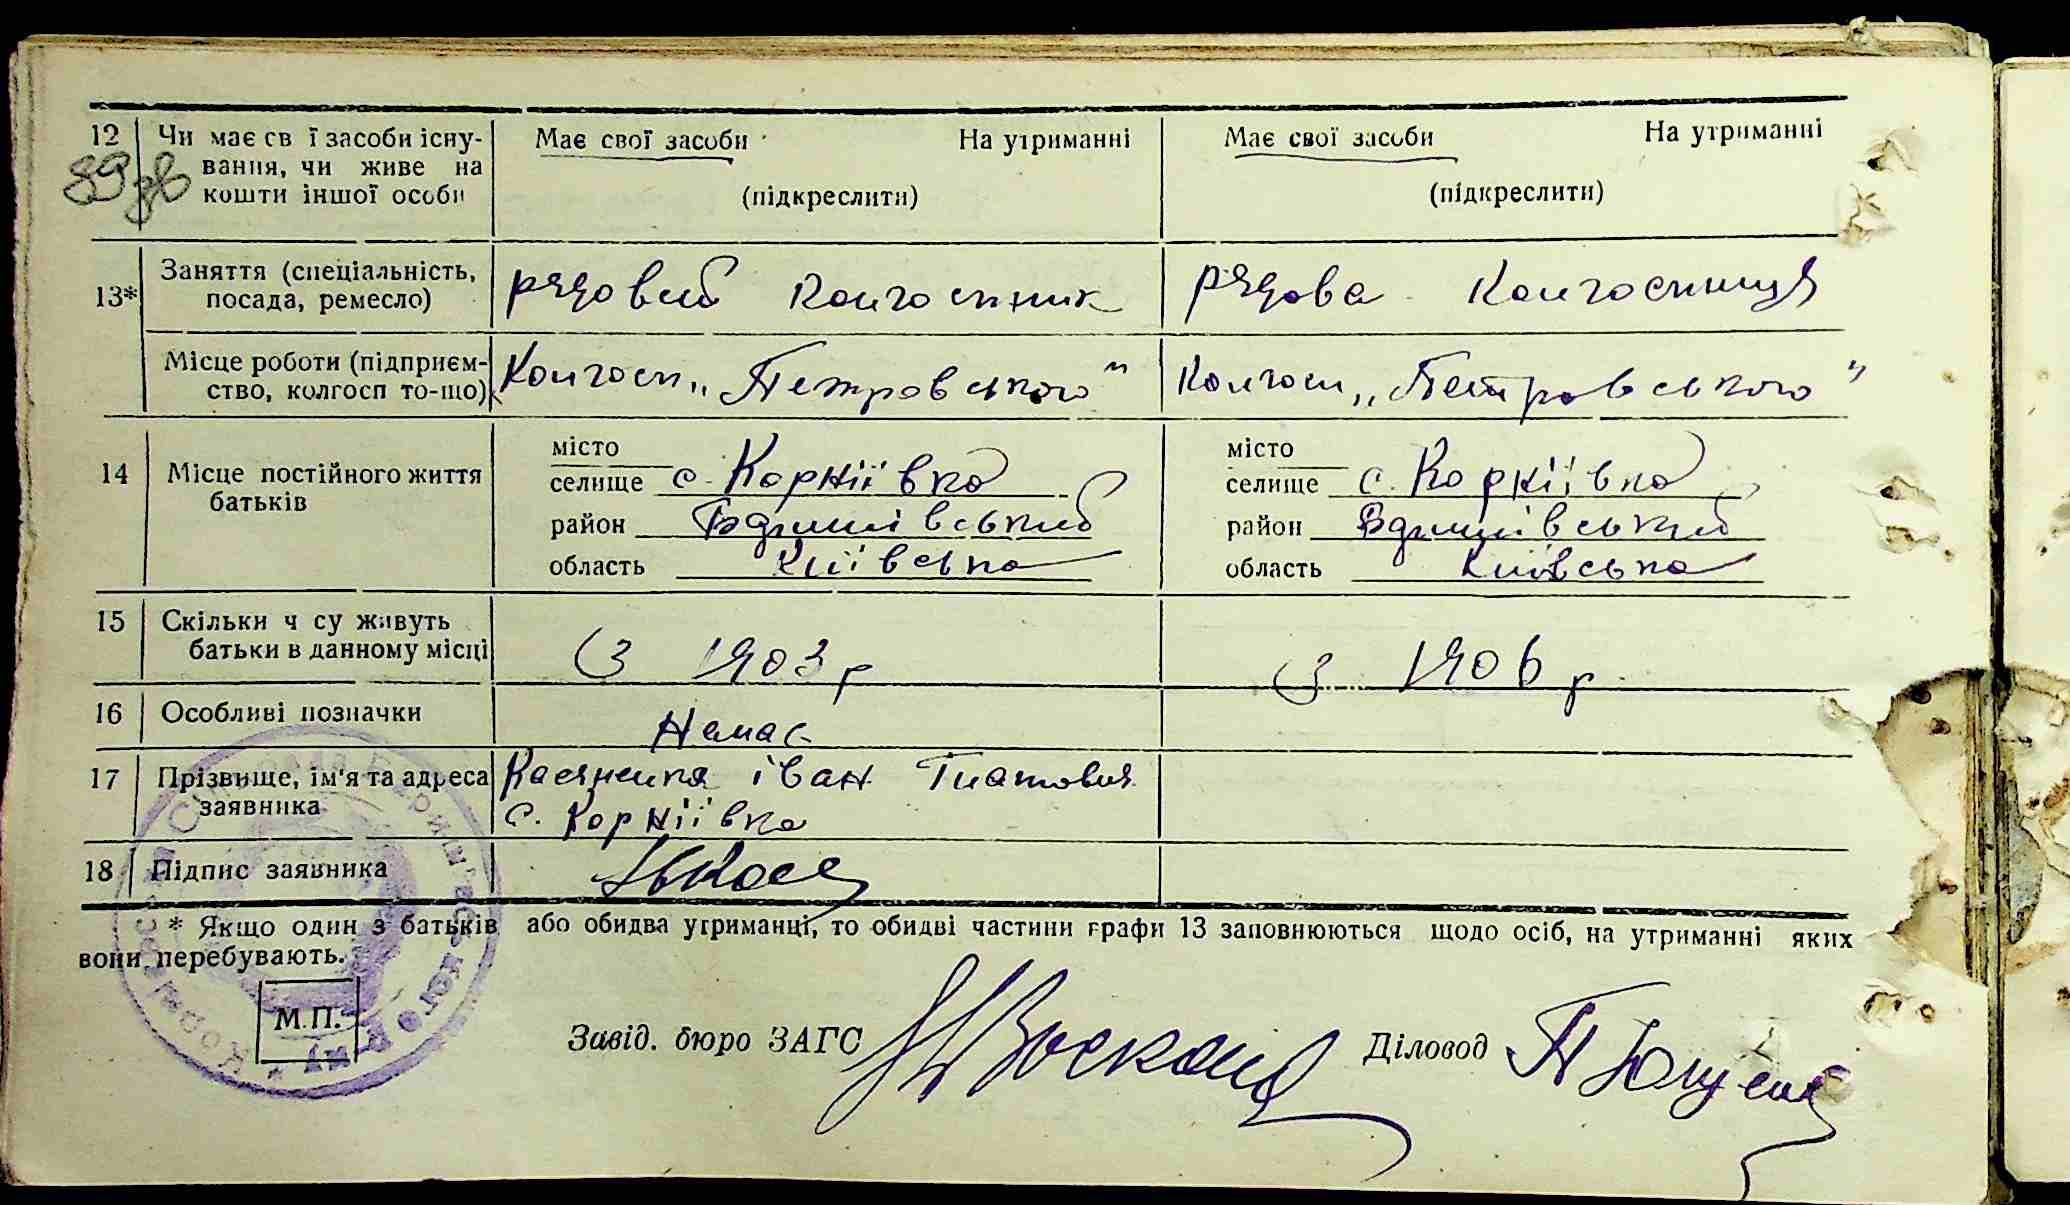 12 Чи має св ї засоби існу-
вання, чи живе на
кошти іншої особи
Має свої засоби На утриманні
(підкреслити)
Має свої засоби На утриманні
(підкреслити)
89 зв
13* Заняття (спеціальність,
посада, ремесло)
рядовий колгоспник
рядова колгоспниця
Місце роботи (підприєм-
ство, колгосп то-що)
Колгосп „Петровського"
Колгосп „Петровського"
14 Місце постійного життя
батьків
місто
селище с. Корніївка
район
область Київська
місто
селище с. Корніївка
район
область Київська
15 Скільки ч су живуть
батьки в данному місці
З 1903 р
З 1906 р.
16 Особливі позначки
Немає
17 Прізвище, ім'я та адреса
заявника
Іван
с. Корніївка
18 Підпис заявника
* Якщо один з батьків або обидва утриманці, то обидві частини графи 13 заповнюються щодо осіб, на утриманні яких
вони перебувають.
М.П.
Завід. бюро ЗАГС Діловод